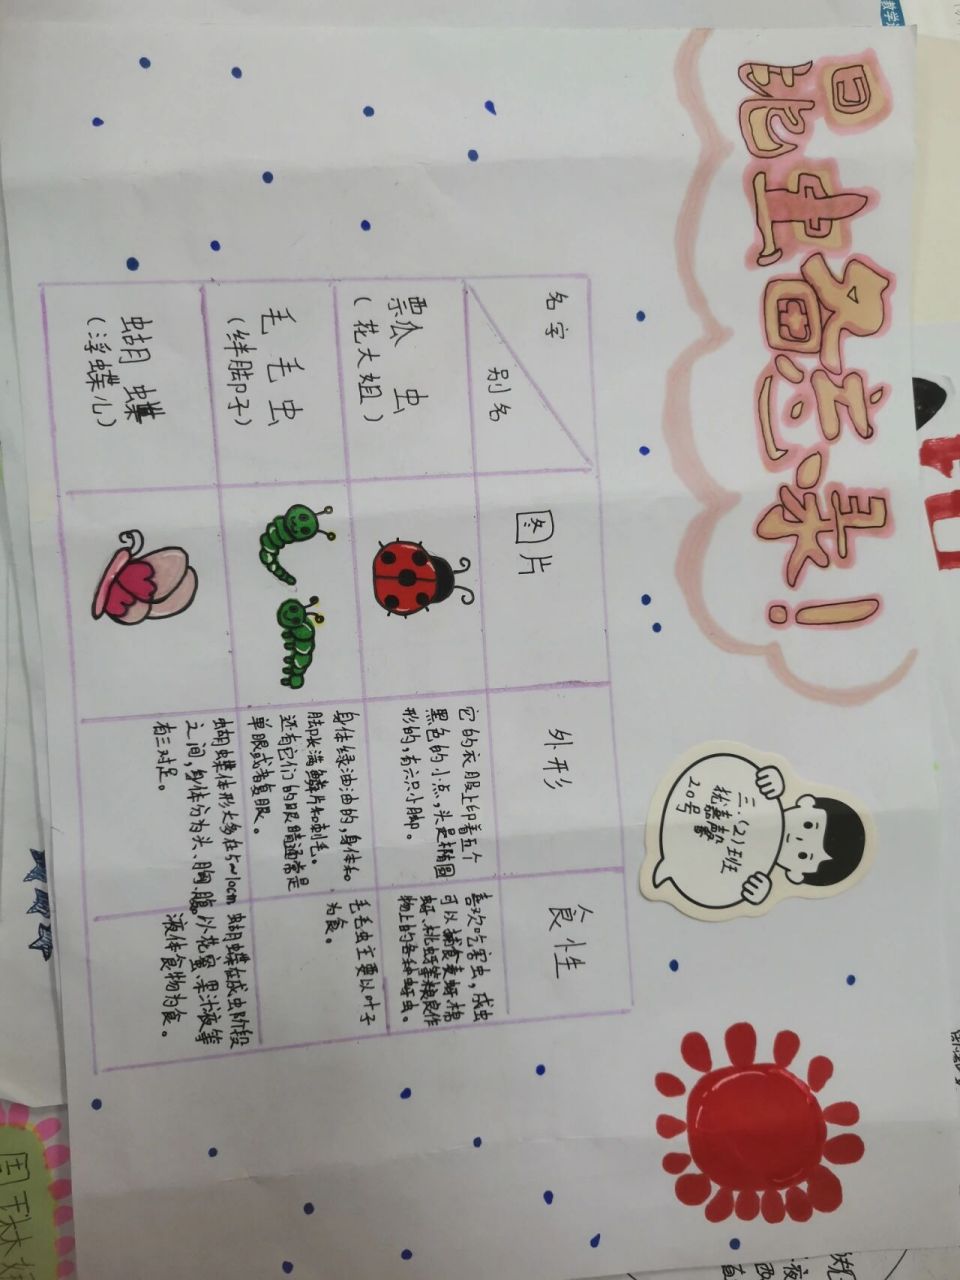 昆虫备忘录！
三.（2）班
20号
名字
别名
图片
外形
食性
票瓜 虫
（花大姐）
它的衣服上印着五个
黑色的小点，头是椭圆
形的，有六只小脚。
喜欢吃害虫，成虫
可以捕食麦蚜、棉
蚜、桃蚜等粮良作
物上的各种蚜虫。
毛毛虫
（绊脚子）
身体绿油油的，身体和
脚长满鳞片和刺毛。
还有它们的眼睛通常是
单眼或者复眼。
毛毛虫主要以叶子
为食。
蝴蝶
（浮蝶儿）
蝴蝶体形大多在5~10cm
之间，身体分为头、胸、腹，
有三对足。
蝴蝶在成虫阶段
以花蜜、果汁液等
液体食物为食。